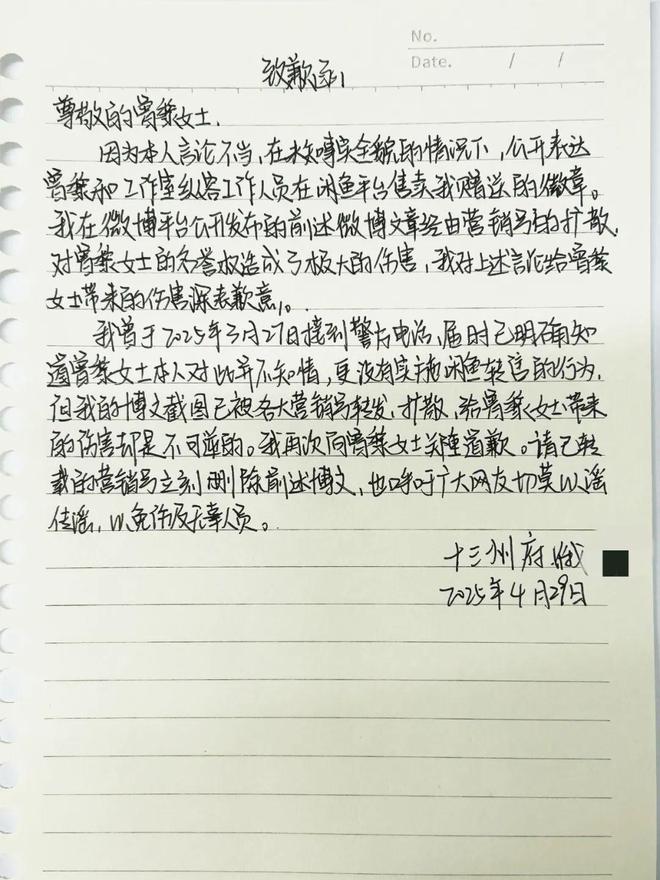 No.
Date. / /
致歉函
尊敬的曾黎女士，
因为本人言论不当，在未知事实全貌的情况下，公开表达
曾黎和工作室纵容工作人员在闲鱼平台售卖我赠送的徽章。
我在微博平台公开发布的前述微博文章经由营销号的扩散，
对曾黎女士的名誉权造成了极大的伤害，我对上述言论给曾黎
女士带来的伤害深表歉意。
我曾于2025年3月27日接到警方电话，届时已明确知
道曾黎女士本人对此并不知情，更没有实施闲鱼转售的行为，
但我的博文截图已被各大营销号转发、扩散，给曾黎女士带来
的伤害却是不可逆的。我再次向曾黎女士郑重道歉。请已转
载的营销号立刻删除前述博文，也呼吁广大网友切莫以谣
传谣，以免伤及无辜人员。
十三州府
2025年4月29日